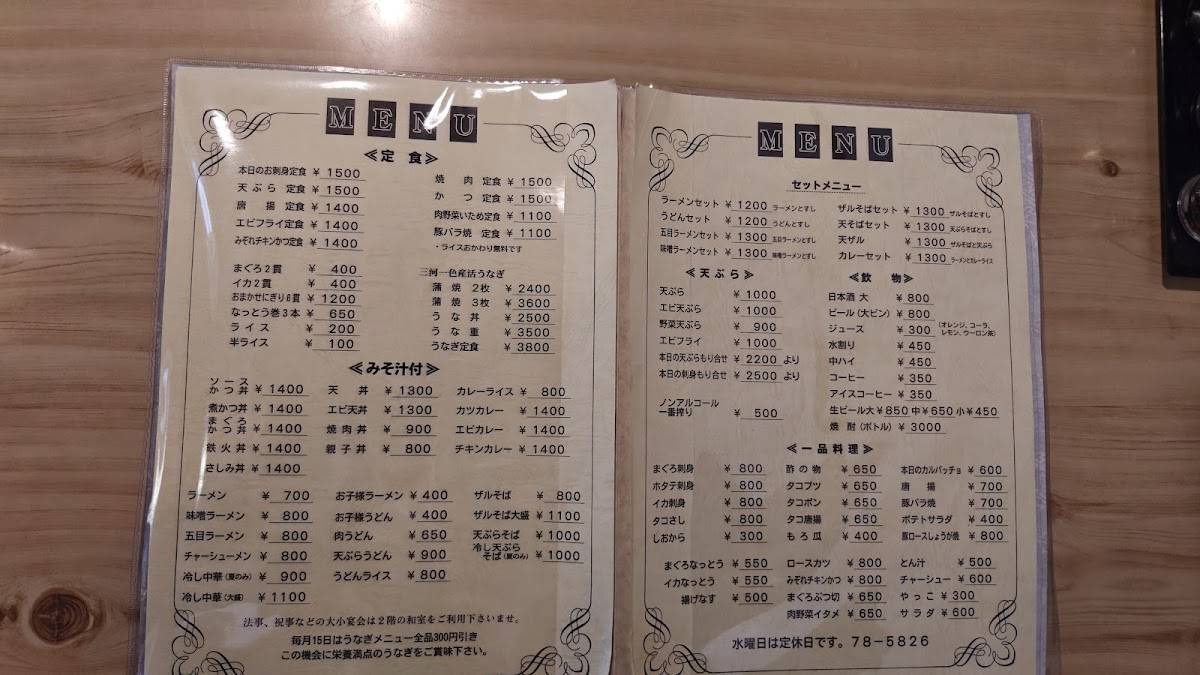 MENU
≪定 食≫
本日のお刺身定食 ¥ 1500
天ぷら 定食 ¥ 1500
唐 揚 定食 ¥ 1400
エビフライ定食 ¥ 1400
みぞれチキンかつ定食 ¥ 1400
焼 肉 定食 ¥ 1500
か つ 定食 ¥ 1500
肉野菜いため定食 ¥ 1100
豚バラ焼 定食 ¥ 1100
・ライスおかわり無料です
まぐろ2貫 ¥ 400
イカ2貫 ¥ 400
おまかせにぎり6貫 ¥ 1200
なっとう巻3本 ¥ 650
ライス ¥ 200
半ライス ¥ 100
三河一色産活うなぎ
蒲 焼 2枚 ¥ 2400
蒲 焼 3枚 ¥ 3600
う な 丼 ¥ 2500
う な 重 ¥ 3500
うなぎ定食 ¥ 3800
≪みそ汁付≫
ソースかつ丼 ¥ 1400
煮かつ丼 ¥ 1400
まぐろかつ丼 ¥ 1400
鉄火丼 ¥ 1400
さしみ丼 ¥ 1400
天 丼 ¥ 1300
エビ天丼 ¥ 1300
焼肉丼 ¥ 900
親子丼 ¥ 800
カレーライス ¥ 800
カツカレー ¥ 1400
エビカレー ¥ 1400
チキンカレー ¥ 1400
ラーメン ¥ 700
味噌ラーメン ¥ 800
五目ラーメン ¥ 800
チャーシューメン ¥ 800
冷し中華(夏のみ) ¥ 900
冷し中華(大盛) ¥ 1100
お子様ラーメン ¥ 400
お子様うどん ¥ 400
肉うどん ¥ 650
天ぷらうどん ¥ 900
うどんライス ¥ 800
ザルそば ¥ 800
ザルそば大盛 ¥ 1100
天ぷらそば ¥ 1000
冷し天ぷらそば(夏のみ) ¥ 1000
法事、祝事などの大小宴会は2階の和室をご利用下さいませ。
毎月15日はうなぎメニュー全品300円引き
この機会に栄養満点のうなぎをご賞味下さい。
MENU
セットメニュー
ラーメンセット ¥ 1200 ラーメンとすし
うどんセット ¥ 1200 うどんとすし
五目ラーメンセット ¥ 1300 五目ラーメンとすし
味噌ラーメンセット ¥ 1300 味噌ラーメンとすし
ザルそばセット ¥ 1300 ザルそばとすし
天そばセット ¥ 1300 天ぷらそばとすし
天ザル ¥ 1300 ザルそばと天ぷら
カレーセット ¥ 1300 ラーメンとカレーライス
≪天ぷら≫
天ぷら ¥ 1000
エビ天ぷら ¥ 1000
野菜天ぷら ¥ 900
エビフライ ¥ 1000
本日の天ぷらもり合せ ¥ 2200 より
本日の刺身もり合せ ¥ 2500 より
ノンアルコール一番搾り ¥ 500
≪飲 物≫
日本酒 大 ¥ 800
ビール(大ビン) ¥ 800
ジュース ¥ 300 (オレンジ、コーラ、レモン、ウーロン茶)
水割り ¥ 450
中ハイ ¥ 450
コーヒー ¥ 350
アイスコーヒー ¥ 350
生ビール大¥850 中¥650 小¥450
焼 酎(ボトル) ¥ 3000
≪一品料理≫
まぐろ刺身 ¥ 800
ホタテ刺身 ¥ 800
イカ刺身 ¥ 800
タコさし ¥ 800
しおから ¥ 300
酢の物 ¥ 650
タコブツ ¥ 650
タコポン ¥ 650
タコ唐揚 ¥ 650
もろ瓜 ¥ 400
本日のカルパッチョ ¥ 600
唐 揚 ¥ 700
豚バラ焼 ¥ 700
ポテトサラダ ¥ 400
豚ロースしょうが焼 ¥ 800
まぐろなっとう ¥ 550
イカなっとう ¥ 550
揚げなす ¥ 500
ロースカツ ¥ 800
みぞれチキンかつ ¥ 800
まぐろぶつ切 ¥ 650
肉野菜イタメ ¥ 650
とん汁 ¥ 500
チャーシュー ¥ 600
やっこ ¥ 300
サラダ ¥ 600
水曜日は定休日です。78-5826